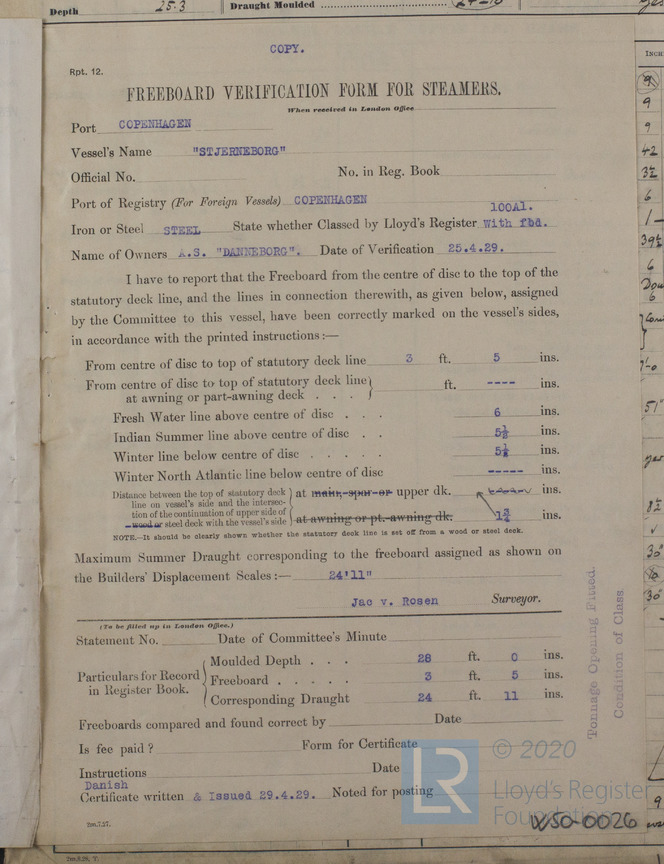 Depth 25.3 Draught Moulded 24-10
COPY.
Rpt. 12.
FREEBOARD VERIFICATION FORM FOR STEAMERS.
When received in London Office
Port COPENHAGEN
Vessel's Name "STJERNEBORG"
Official No. No. in Reg. Book
Port of Registry (For Foreign Vessels) COPENHAGEN
100A1.
Iron or Steel STEEL State whether Classed by Lloyd's Register With fbd.
Name of Owners A.S. "DANNEBORG". Date of Verification 25.4.29.
I have to report that the Freeboard from the centre of disc to the top of the
statutory deck line, and the lines in connection therewith, as given below, assigned
by the Committee to this vessel, have been correctly marked on the vessel's sides,
in accordance with the printed instructions:—
From centre of disc to top of statutory deck line 3 ft. 5 ins.
From centre of disc to top of statutory deck line
at awning or part-awning deck . . . ft. ---- ins.
Fresh Water line above centre of disc . . . 6 ins.
Indian Summer line above centre of disc . . 5½ ins.
Winter line below centre of disc . . . . . 5½ ins.
Winter North Atlantic line below centre of disc ----- ins.
Distance between the top of statutory deck
line on vessel's side and the intersec-
tion of the continuation of upper side of
wood or steel deck with the vessel's side
at main, spar or upper dk. ins.
at awning or pt.-awning dk. 1¾ ins.
NOTE.—It should be clearly shown whether the statutory deck line is set off from a wood or steel deck.
Maximum Summer Draught corresponding to the freeboard assigned as shown on
the Builders' Displacement Scales:— 24'11"
Jac v. Rosen Surveyor.
(To be filled up in London Office.)
Statement No. Date of Committee's Minute
Particulars for Record
in Register Book.
Moulded Depth . . . 28 ft. 0 ins.
Freeboard . . . . . 3 ft. 5 ins.
Corresponding Draught 24 ft. 11 ins.
Freeboards compared and found correct by Date
Is fee paid? Form for Certificate
Instructions Date
Danish
Certificate written & Issued 29.4.29. Noted for posting
Tonnage Opening Fitted.
Condition of Class
LR
© 2020
Lloyd's Register
Foundation
W50-0026
INCH
9
9
42
6
6
51
30
30
9